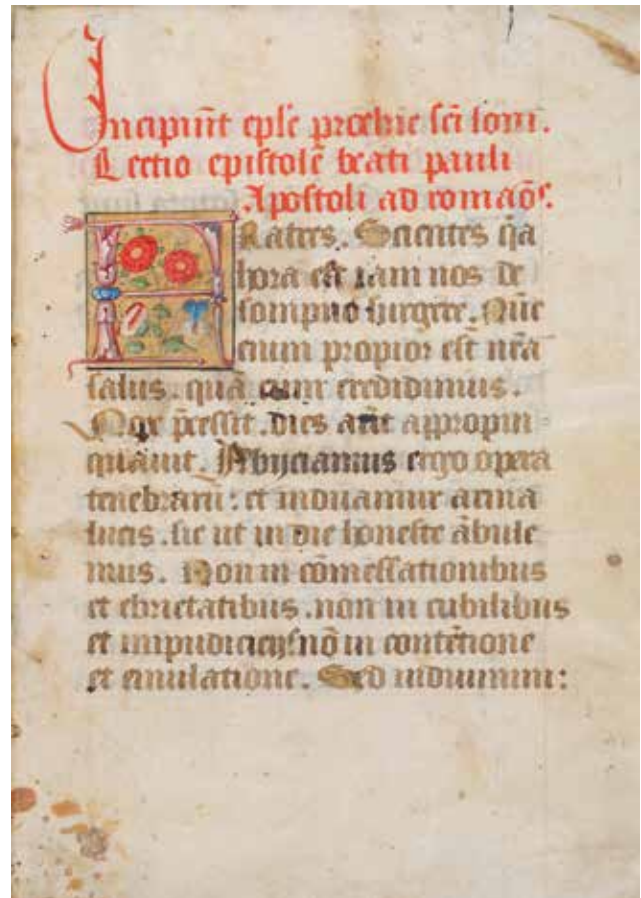 Incipiūt eple
Lectio epistole beati pauli
Apostoli ad romaōs.
FRatres. Scientes q̄a
hora est iam nos de
sompno surgere. Nūc
enim propior est nr̄a
salus. quā cum credidimus.
Nox p̄cessit. dies aūt appropin
quauit. Abijciamus ergo opera
tenebrarū: et induamur arma
lucis. sic ut in die honeste ābule
mus. Non in cōmessationibus
et ebrietatibus. non in cubilibus
et impudicicijs nō in contētione
et emulatione. Sed induimini: